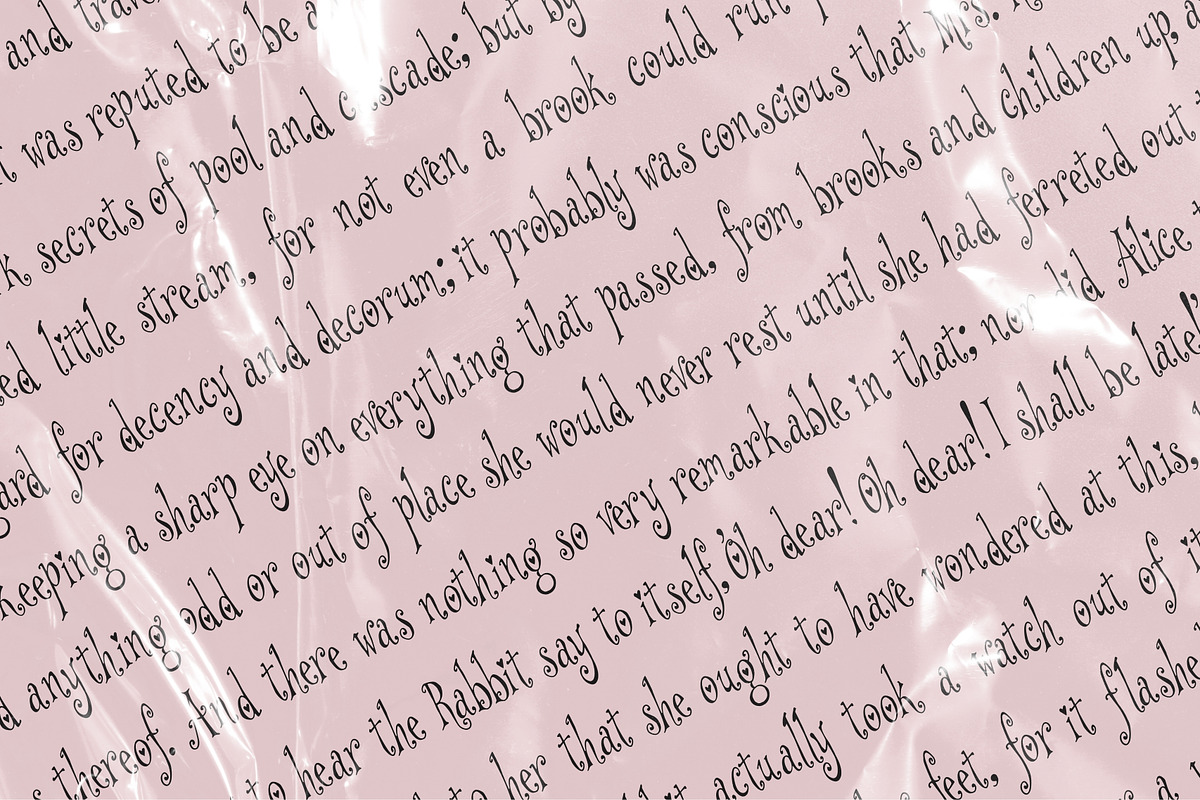 and
was reputed to be a
secrets of pool and cascade; but by
little stream, for not even a brook could run
for decency and decorum; it probably was conscious that Mrs.
keeping a sharp eye on everything that passed, from brooks and children up,
anything odd or out of place she would never rest until she had ferreted out
thereof. And there was nothing so very remarkable in that; nor did Alice
to hear the Rabbit say to itself, 'Oh dear! Oh dear! I shall be late!'
to her that she ought to have wondered at this,
actually took a watch out of
feet, for it
a